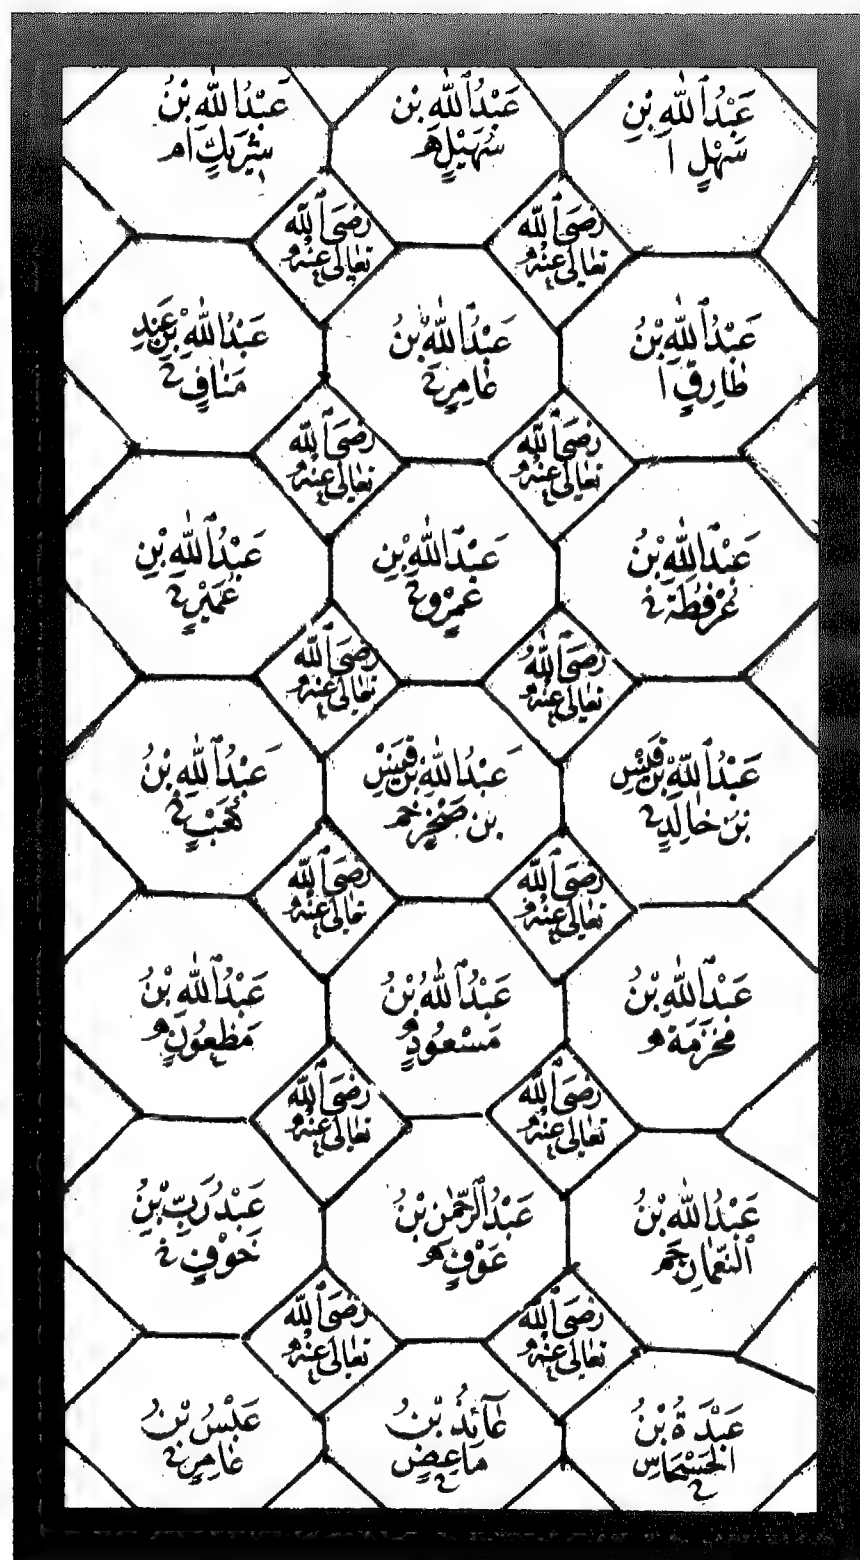 عَبْدُاللّٰهِ بْنِ
سَهْلٍ ا
عَبْدُاللّٰهِ بْنِ
سُهَيْلٍ هـ
عَبْدُاللّٰهِ بْنُ
شَرِيكٍ ا م
رَضِیَ اللّٰه
تَعَالٰی عِنْهُ و
رَضِیَ اللّٰه
تَعَالٰی عِنْهُ و
عَبْدُاللّٰهِ بْنُ
طَارِقٍ ا
عَبْدُاللّٰهِ بْنُ
عَامِرٍ خ
عَبْدُاللّٰهِ بْنِ عَبْدِ
مَنَافٍ خ
رَضِیَ اللّٰه
تَعَالٰی عِنْهُ و
رَضِیَ اللّٰه
تَعَالٰی عِنْهُ و
عَبْدُاللّٰهِ بْنُ
عُرْفُطَةَ خ
عَبْدُاللّٰهِ بْنِ
عَمْرٍو خ
عَبْدُاللّٰهِ بْنِ
عُمَيْرٍ خ
رَضِیَ اللّٰه
تَعَالٰی عِنْهُ و
رَضِیَ اللّٰه
تَعَالٰی عِنْهُ و
عَبْدُاللّٰهِ بْنُ قَيْسِ
بْنِ خَالِدٍ خ
عَبْدُاللّٰهِ بْنُ قَيْسِ
بْنِ صَخْرٍ خم
عَبْدُاللّٰهِ بْنُ
كَعْبٍ خ
رَضِیَ اللّٰه
تَعَالٰی عِنْهُ و
رَضِیَ اللّٰه
تَعَالٰی عِنْهُ و
عَبْدُاللّٰهِ بْنُ
مَخْرَمَةَ هـ
عَبْدُاللّٰهِ بْنُ
مَسْعُودٍ هـ
عَبْدُاللّٰهِ بْنُ
مَظْعُونٍ هـ
رَضِیَ اللّٰه
تَعَالٰی عِنْهُ و
رَضِیَ اللّٰه
تَعَالٰی عِنْهُ و
عَبْدُاللّٰهِ بْنُ
النُّعْمَانِ خم
عَبْدُالرَّحْمٰنِ بْنُ
عَوْفٍ هـ
عَبْدُ رَبِّ بْنِ
حَوْفٍ خ
رَضِیَ اللّٰه
تَعَالٰی عِنْهُ و
رَضِیَ اللّٰه
تَعَالٰی عِنْهُ و
عَبْدَةُ بْنُ
الْحَسْحَاسِ خ
عَائِذُ بْنُ
مَاعِضٍ خ
عَبْسُ بْنُ
عَامِرٍ خ